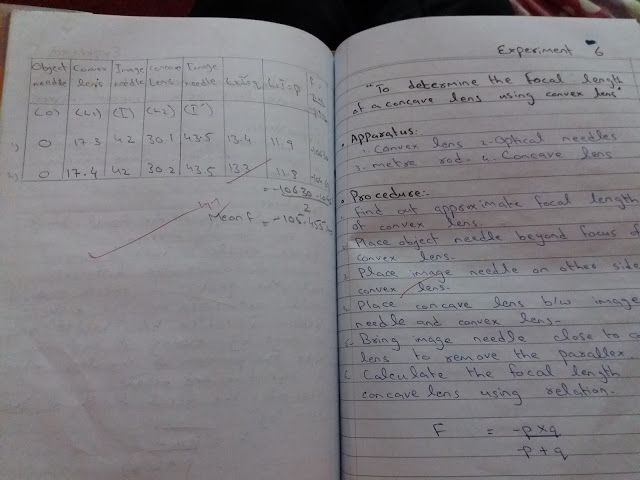 Object Convex Image Concave Image L2I'=q L2I=p F
needle lens needle Lens needle
(O) (L1) (I) (L2) (I')
1) O 17.3 42 30.1 43.5 13.4 11.9
2) O 17.4 42 30.2 43.5 13.3 11.8
2
Mean f = -105.455
Experiment 6
"To determine the focal length
of a concave lens using convex lens"
Apparatus:-
1. Convex lens 2. Optical needles
3. metre rod. 4. Concave lens
Procedure:-
Find out approximate focal length
of convex lens.
Place object needle beyond focus of
convex lens.
Place image needle on other side
convex lens.
Place concave lens b/w image
needle and convex lens.
Bring image needle close to
lens to remove the parallex
Calculate the focal length
concave lens using relation.
F = -p×q
-p+q